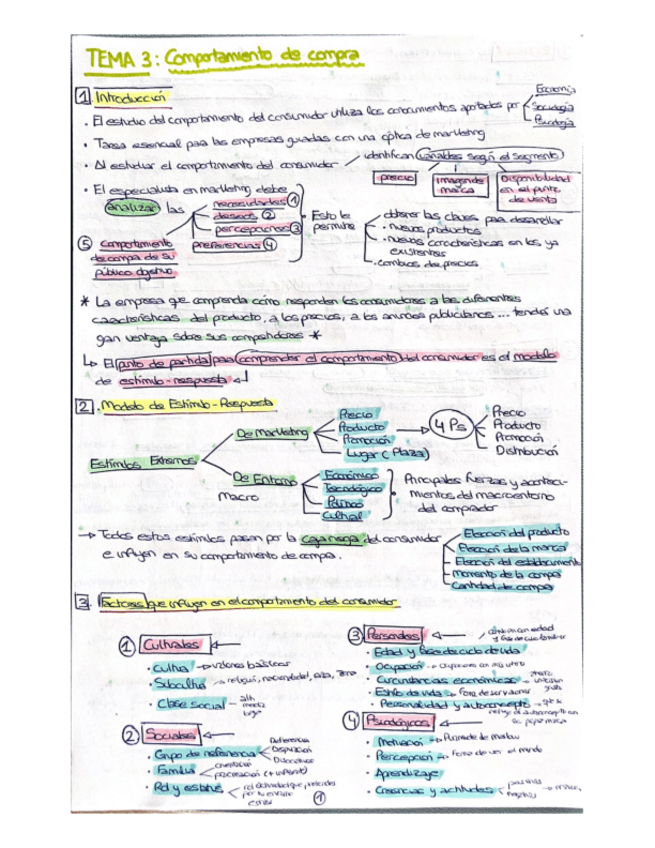 TEMA 3: Comportamiento de compra
1. Introducción
· El estudio del comportamiento del consumidor utiliza los conocimientos aportados por
Economía
Sociología
Psicología
· Tarea esencial para las empresas guiadas con una óptica de marketing
· Al estudiar el comportamiento del consumidor identifican variables según el segmento
precio
Imagen de marca
Disponibilidad en el punto de venta
· El especialista en marketing debe
analizar las
necesidades 1
deseos 2
percepciones 3
preferencias 4
5 Comportamiento
de compra de su
público objetivo
Esto le
permite
obtener las claves para desarrollar
· nuevos productos
· nuevas características en los ya
existentes
· cambios de precios
* La empresa que comprenda cómo responden los consumidores a las diferentes
características del producto, a los precios, a los anuncios publicitarios ... tendrá una
gran ventaja sobre sus competidores *
↳ El punto de partida para comprender el comportamiento del consumidor es el modelo
de estímulo-respuesta
2. Modelo de Estímulo-Respuesta
Estímulos Externos
De Marketing
Precio
Producto
Promoción
Lugar (Plaza)
→ 4 Ps
Precio
Producto
Promoción
Distribución
De Entorno
Macro
Económico
Tecnológico
Político
Cultural
Principales fuerzas y aconteci-
mientos del macroentorno
del comprador
→ Todos estos estímulos pasan por la caja negra del consumidor
e influyen en su comportamiento de compra.
Elección del producto
Elección de la marca
Elección del establecimiento
Momento de la compra
Cantidad de compra
3. Factores que influyen en el comportamiento del consumidor
1 Culturales
· Cultura → valores básicos
· Subcultura → religión, nacionalidad, raza, zona
· Clase social
alta
media
baja
2 Sociales
· Grupo de referencia
Referencia
Aspiración
· Familia
orientación
procreación
· Rol y estatus
1
3 Personales
· Edad y fase de ciclo de vida
· Ocupación
· Circunstancias económicas
· Estilo de vida → forma de ser y actuar
· Personalidad y autoconcepto
4 Psicológicos
· Motivación → Pirámide de Maslow
· Percepción → forma de ver el mundo
· Aprendizaje
· Creencias y actitudes
positivas
negativas